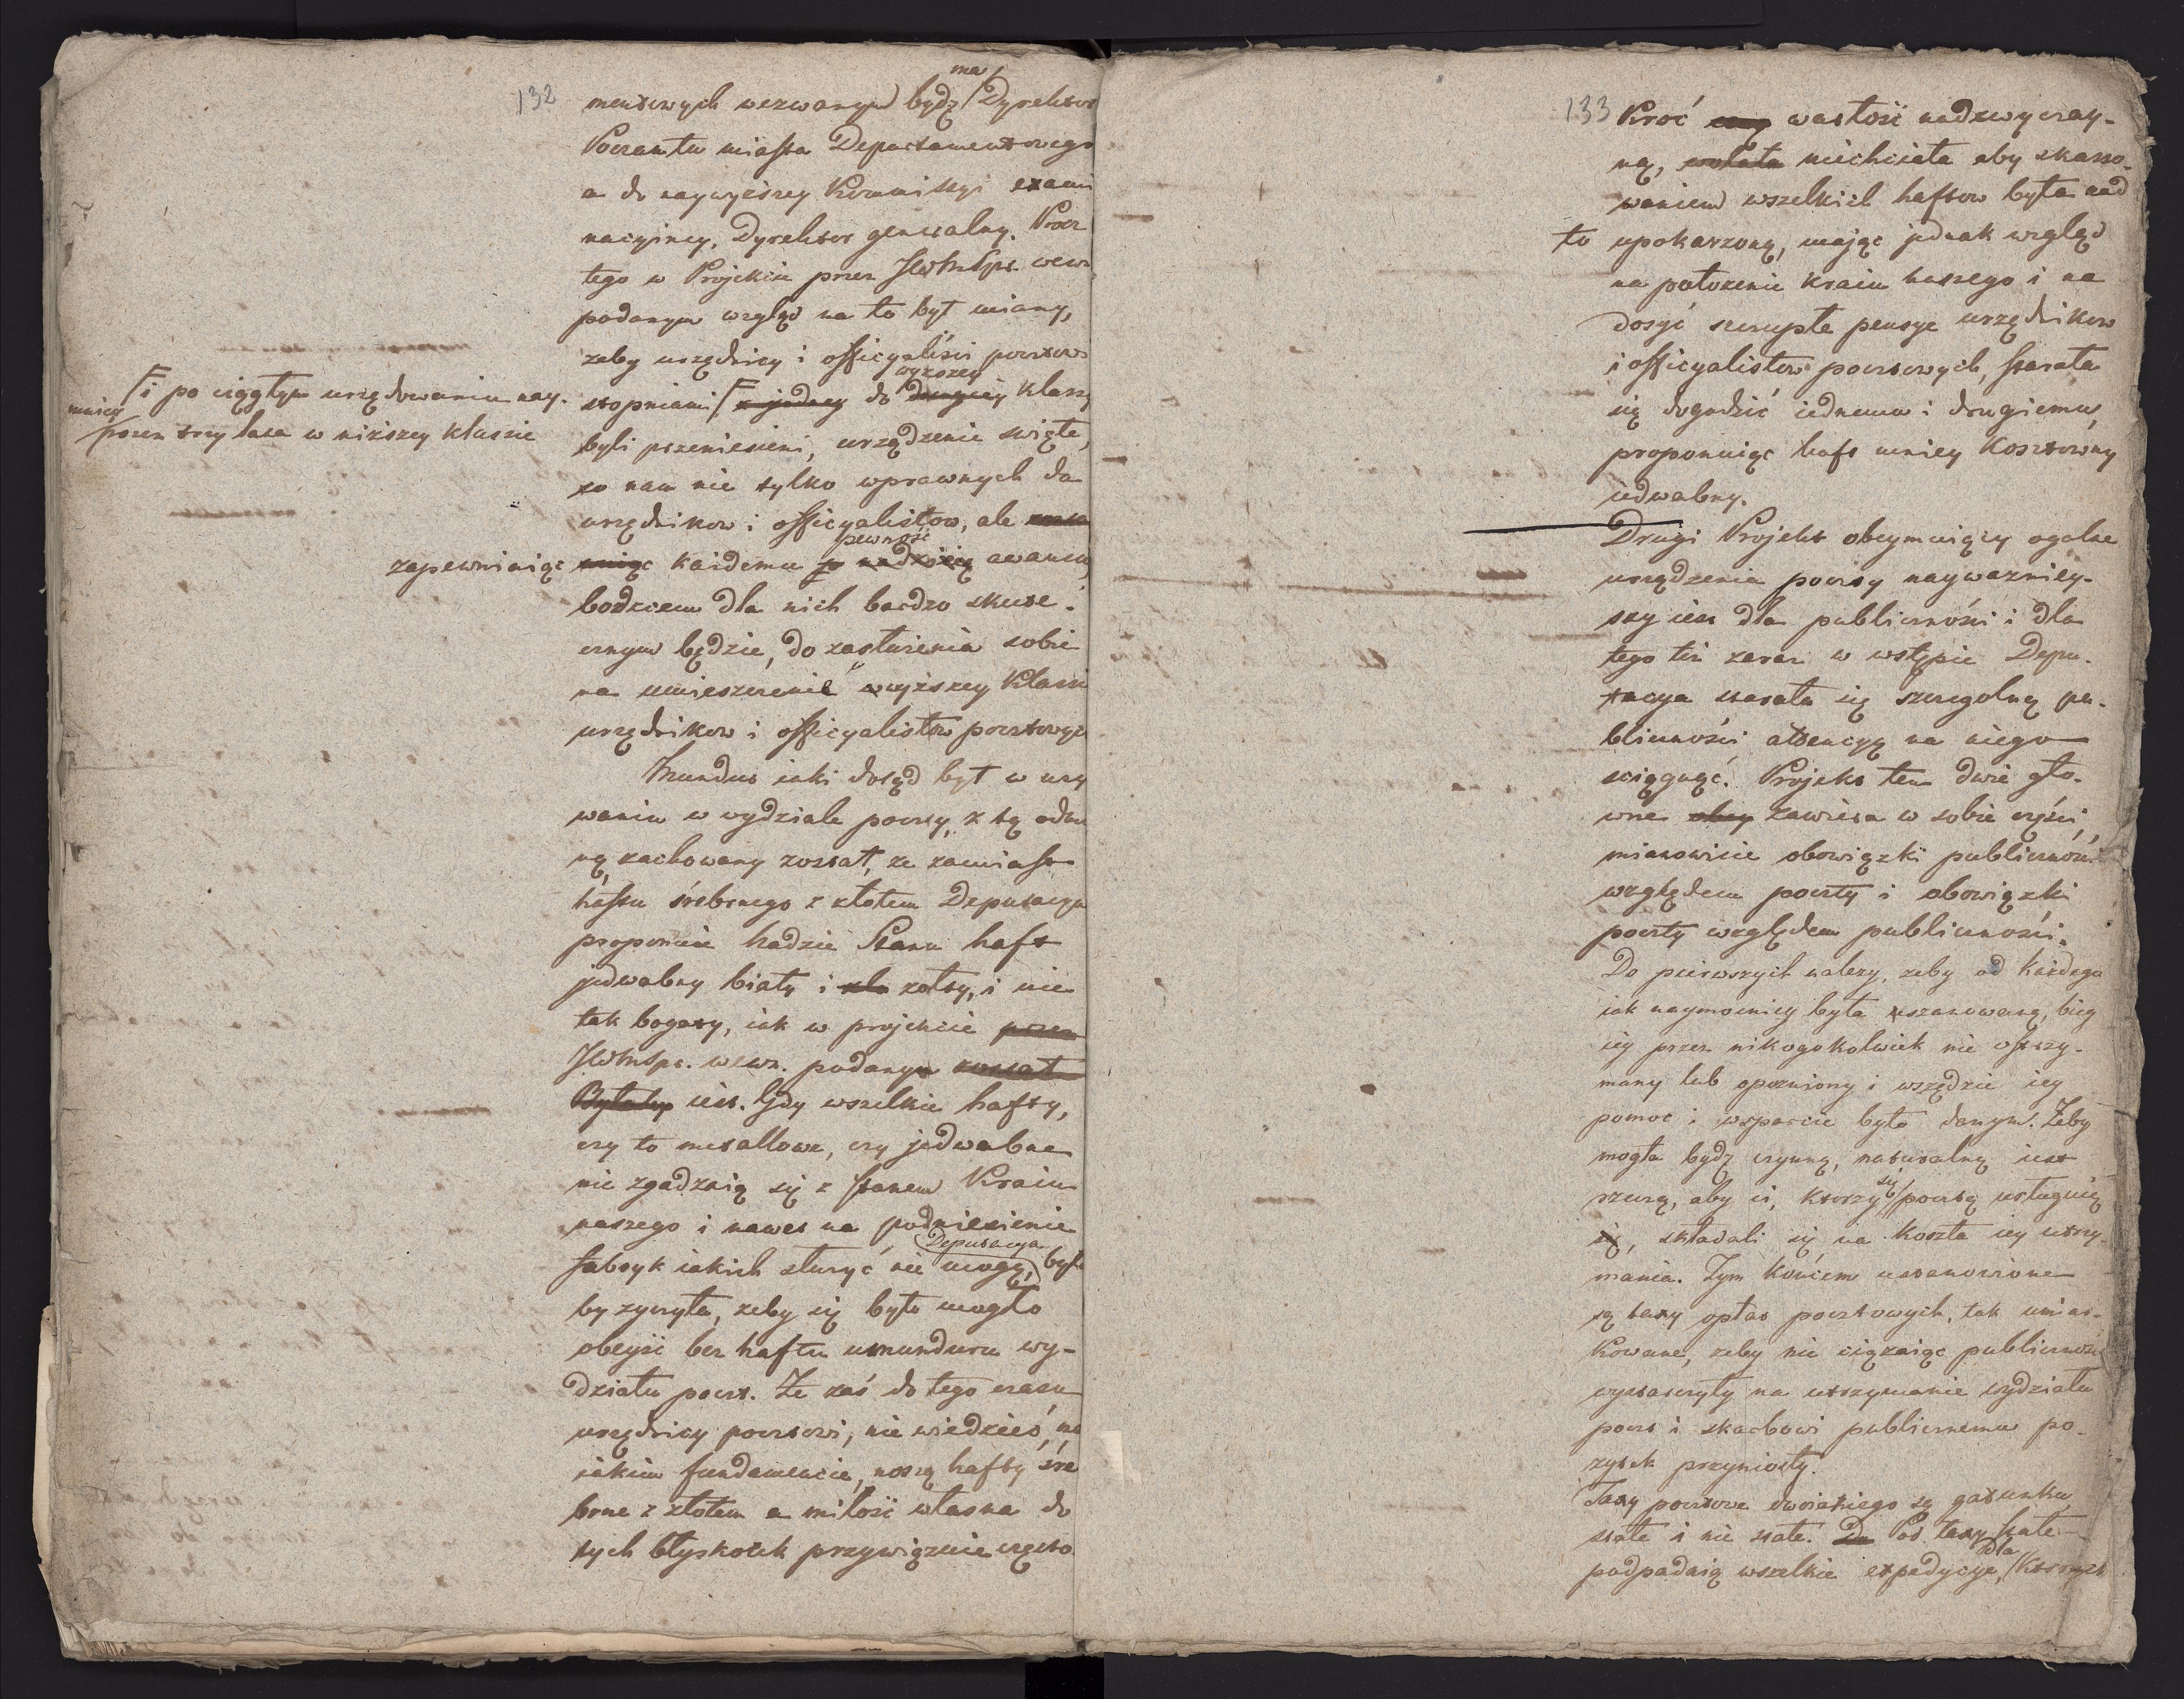 132
ma
mentowych wezwanym bydź Dyrektor
Pocztamtu miasta Departamentowego
a do naywyższey Kommissyi exami
nacyiney, Dyrektor generalny. Procz
tego w Projekcie przez JWMSpr. wewn.
podanym wzgląd na to był miany,
żeby urzędnicy i officyaliści pocztowi
wyższey
stopniami z jedney do drugiey klassy
i po ciągłym urzędowaniu nay-
mniey
przez trzy lata w niższey klassie
byli przeniesieni, urządzenie święte,
co nam nie tylko wprawnych da
urzędnikow i officyalistow, ale
pewność
zapewniaiąc każdemu nadzieię awansu,
bodzcem dla nich bardzo skute-
cznym będzie, do zasłużenia sobie
na umieszczenie w wyższey Klassie
urzędnikow i officyalistow pocztowych
Mundur iaki dotąd był w uży
waniu w wydziale poczty, z tą odmia
ną zachowany został, że zamiast
haftu śrebrnego z złotem Deputacya
proponuie Radzie Stanu haft
jedwabny biały i żołty, i nie
tak bogaty, iak w projekcie przez
JWMSpr. wewn. podanym został
Byłoby iest. Gdy wszelkie hafty,
czy to metallowe, czy jedwabne
nie zgadzaią się z stanem Kraiu
naszego i nawet na podniesienie
Deputacya
fabryk iakich służyć nie mogą, była
by życzyła, żeby się było mogło
obeyść bez haftu u munduru wy-
działu poczt. Że zaś do tego czasu
urzędnicy pocztowi, nie wiedzieć, na
iakim fundamencie, noszą hafty śre
brne z złotem a miłość własna do
tych błyskotek przywiązuie często
133 Kroć wartość nadzwyczay-
ną, wolała niechciała aby skasso-
waniem wszelkich haftow była nad
to upokarzoną, maiąc jednak wzgląd
na położenie kraiu naszego i na
dosyć szczupłe pensye urzędnikow
i officyalistow pocztowych, starała
się dogodzić iednemu i drugiemu,
proponuiąc haft mniey kosztowny
iedwabny.
Drugi Projekt obeymuiący ogolne
urządzenia poczty nayważniey-
szy iest dla publiczności i dla
tego też zaraz w wstępie Depu-
tacya starała się szczegolną pu-
bliczności attencyą na niego
sciągnąć. Projekt ten dwie gło-
wne obey zawiera w sobie części,
mianowicie obowiązki publiczności
względem poczty i obowiązki
poczty względem publiczności.
Do pierwszych należy, żeby od każdego
iak naymocniey była uszanowaną, bieg
iey przez nikogokolwiek nie otrzy-
many lub opozniony i wszędzie iey
pomoc i wsparcie było danym. Żeby
mogła bydź czynną, naturalną iest
się
rzeczą, aby ci, ktorzy pocztą usługuią
się, składali się na koszta iey utrzy-
mania. Tym końcem ustanowione
są taxy opłat pocztowych, tak umiar-
kowane, żeby nie ciążąc publiczności
wystarczyły na utrzymanie wydziału
poczt i skarbowi publicznemu po-
żytek przyniosły.
Taxy pocztowe dwoiakiego są gatunku
stałe i nie stałe. Do Pod taxy stałe
dla
podpadaią wszelkie expedycye, ktorych